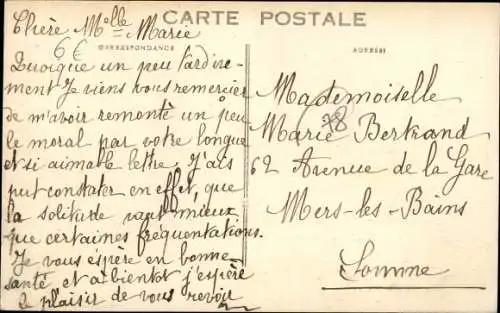 CARTE POSTALE
CORRESPONDANCE
ADRESSE
Chère Mlle Marie
6€
Quoique un peu tardive-
ment Je viens vous remercier
de m'avoir remonté un peu
le moral par votre longue
et si aimable lettre. J'ais
put constater en effet, que
la solitude vaut mieux
que certaines fréquentations.
Je vous espère en bonne
santé et à bientot j'espère
le plaisir de vous revoir
Mademoiselle
78
Marie Bertrand
62 Avenue de la Gare
Mers-les-Bains
Somme